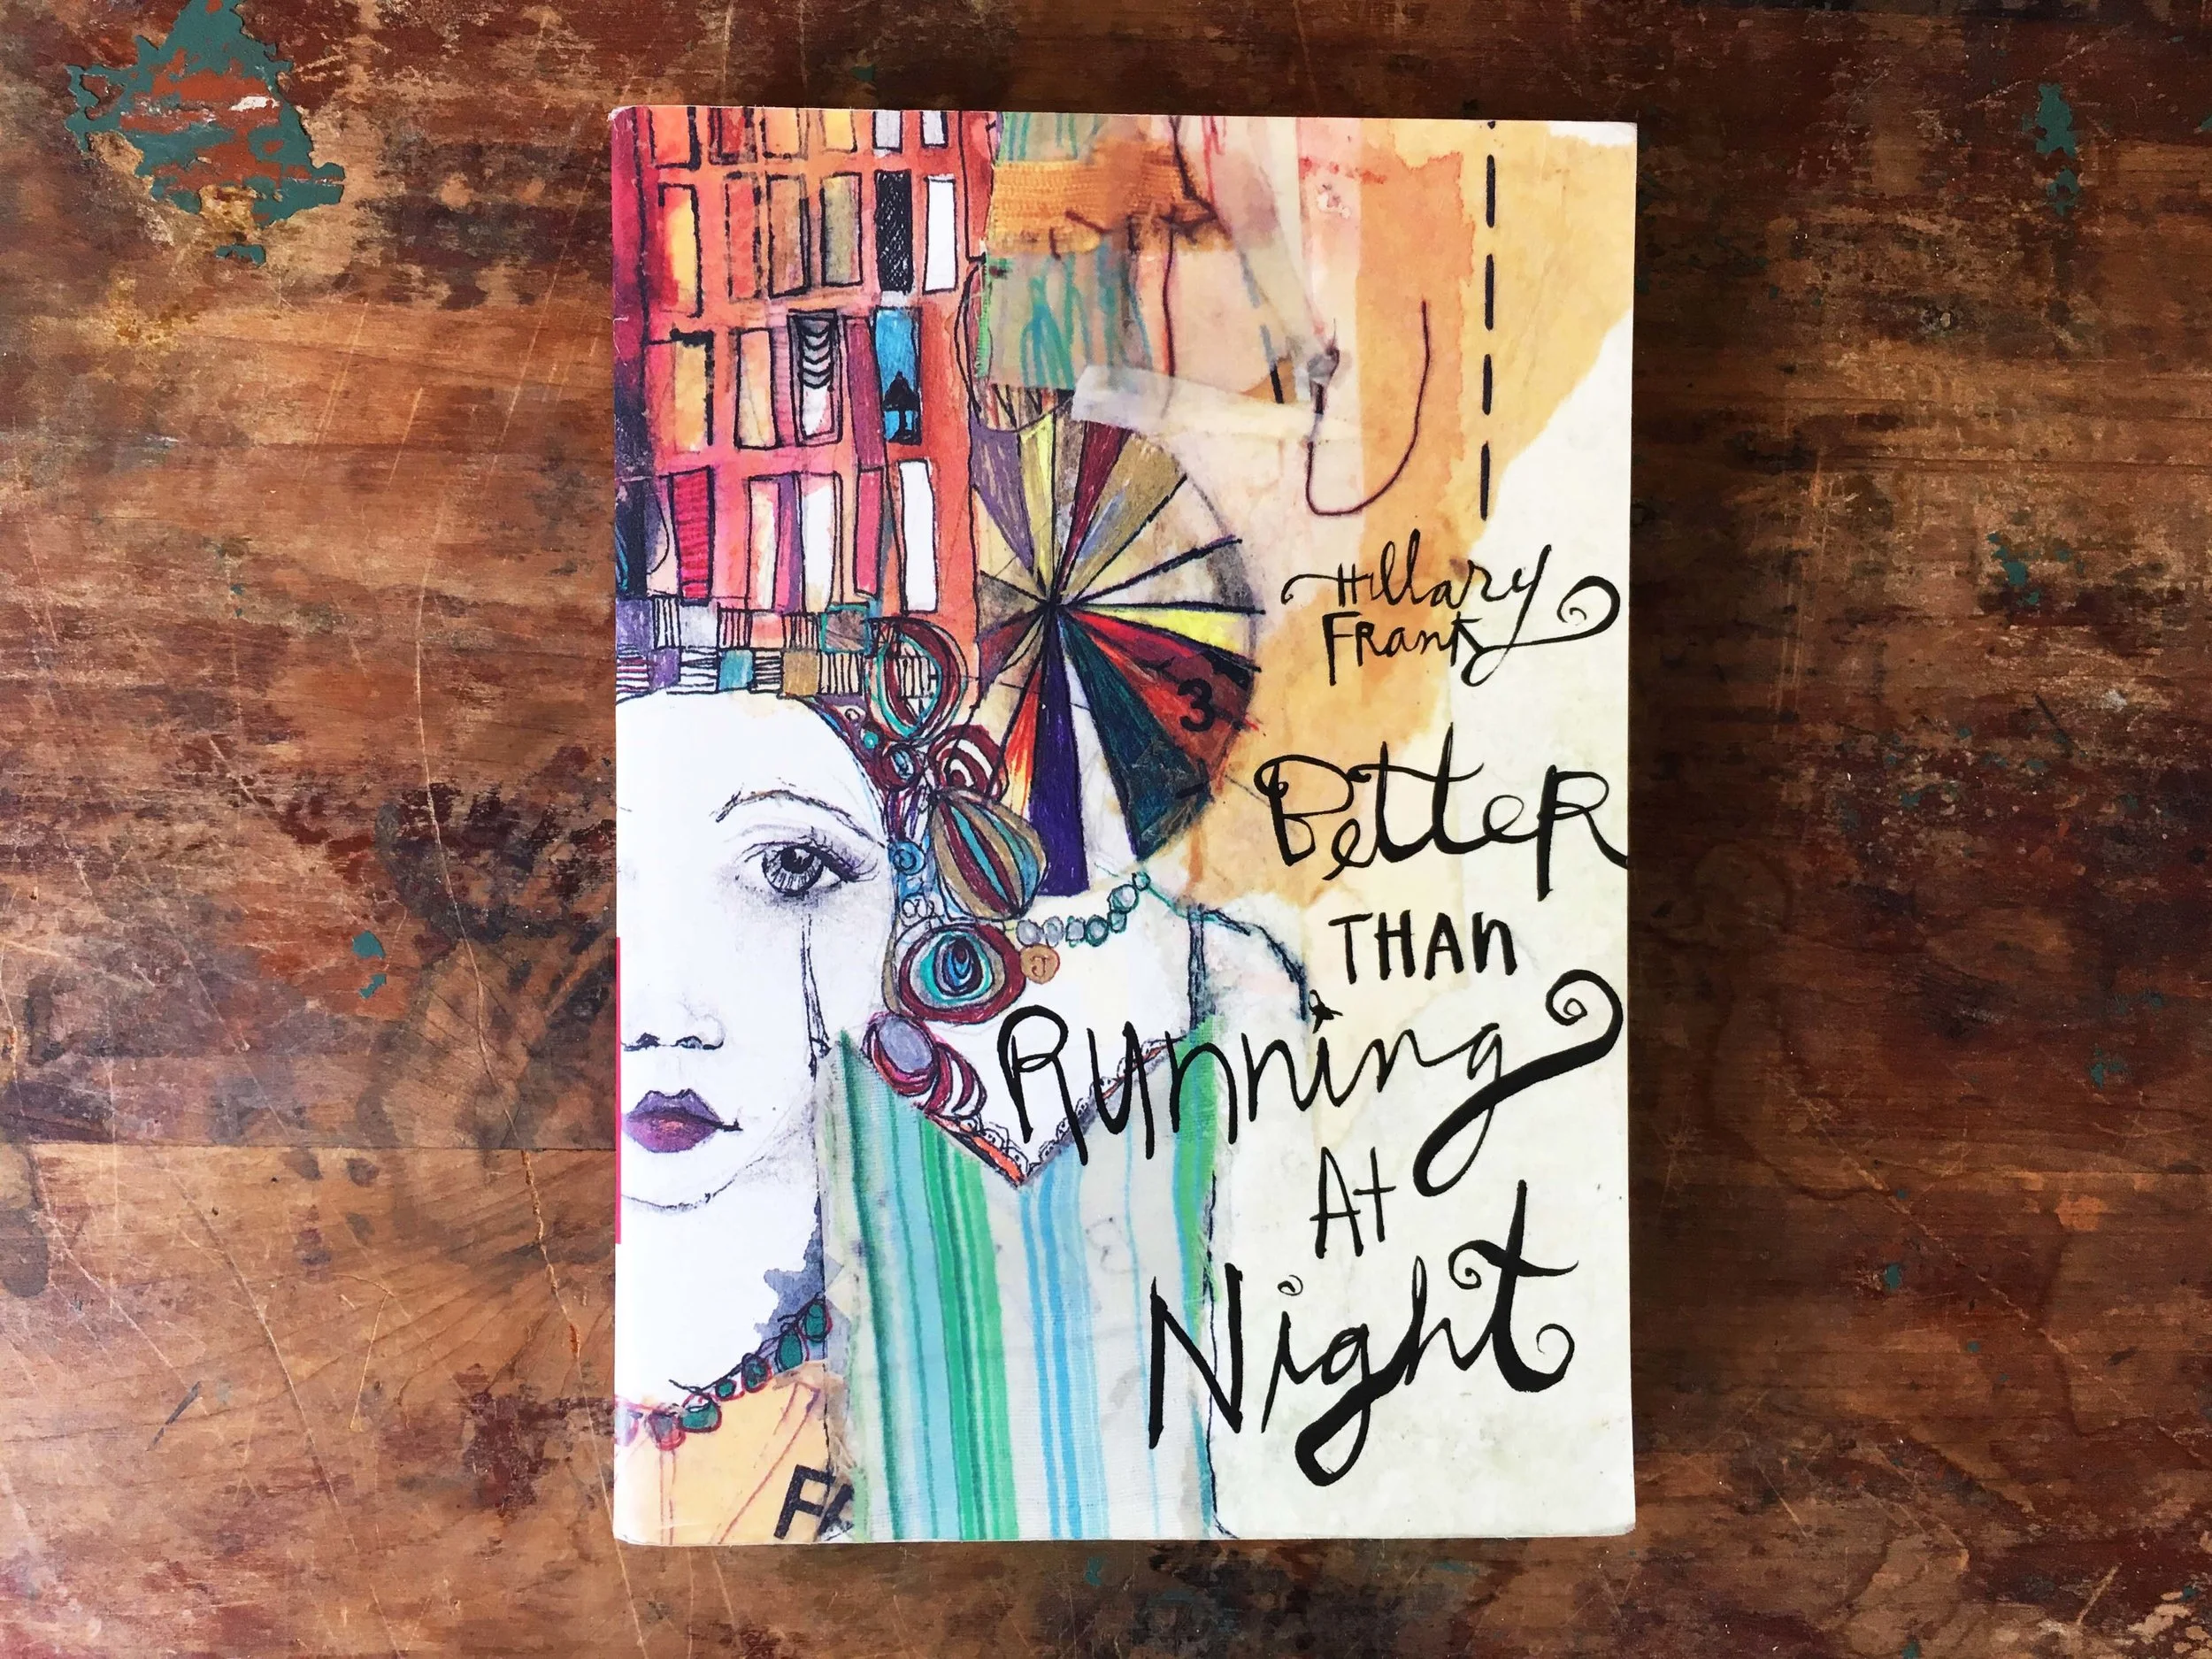 3
Hillary
Frank
Better
THAn
Running
At
Night
FA